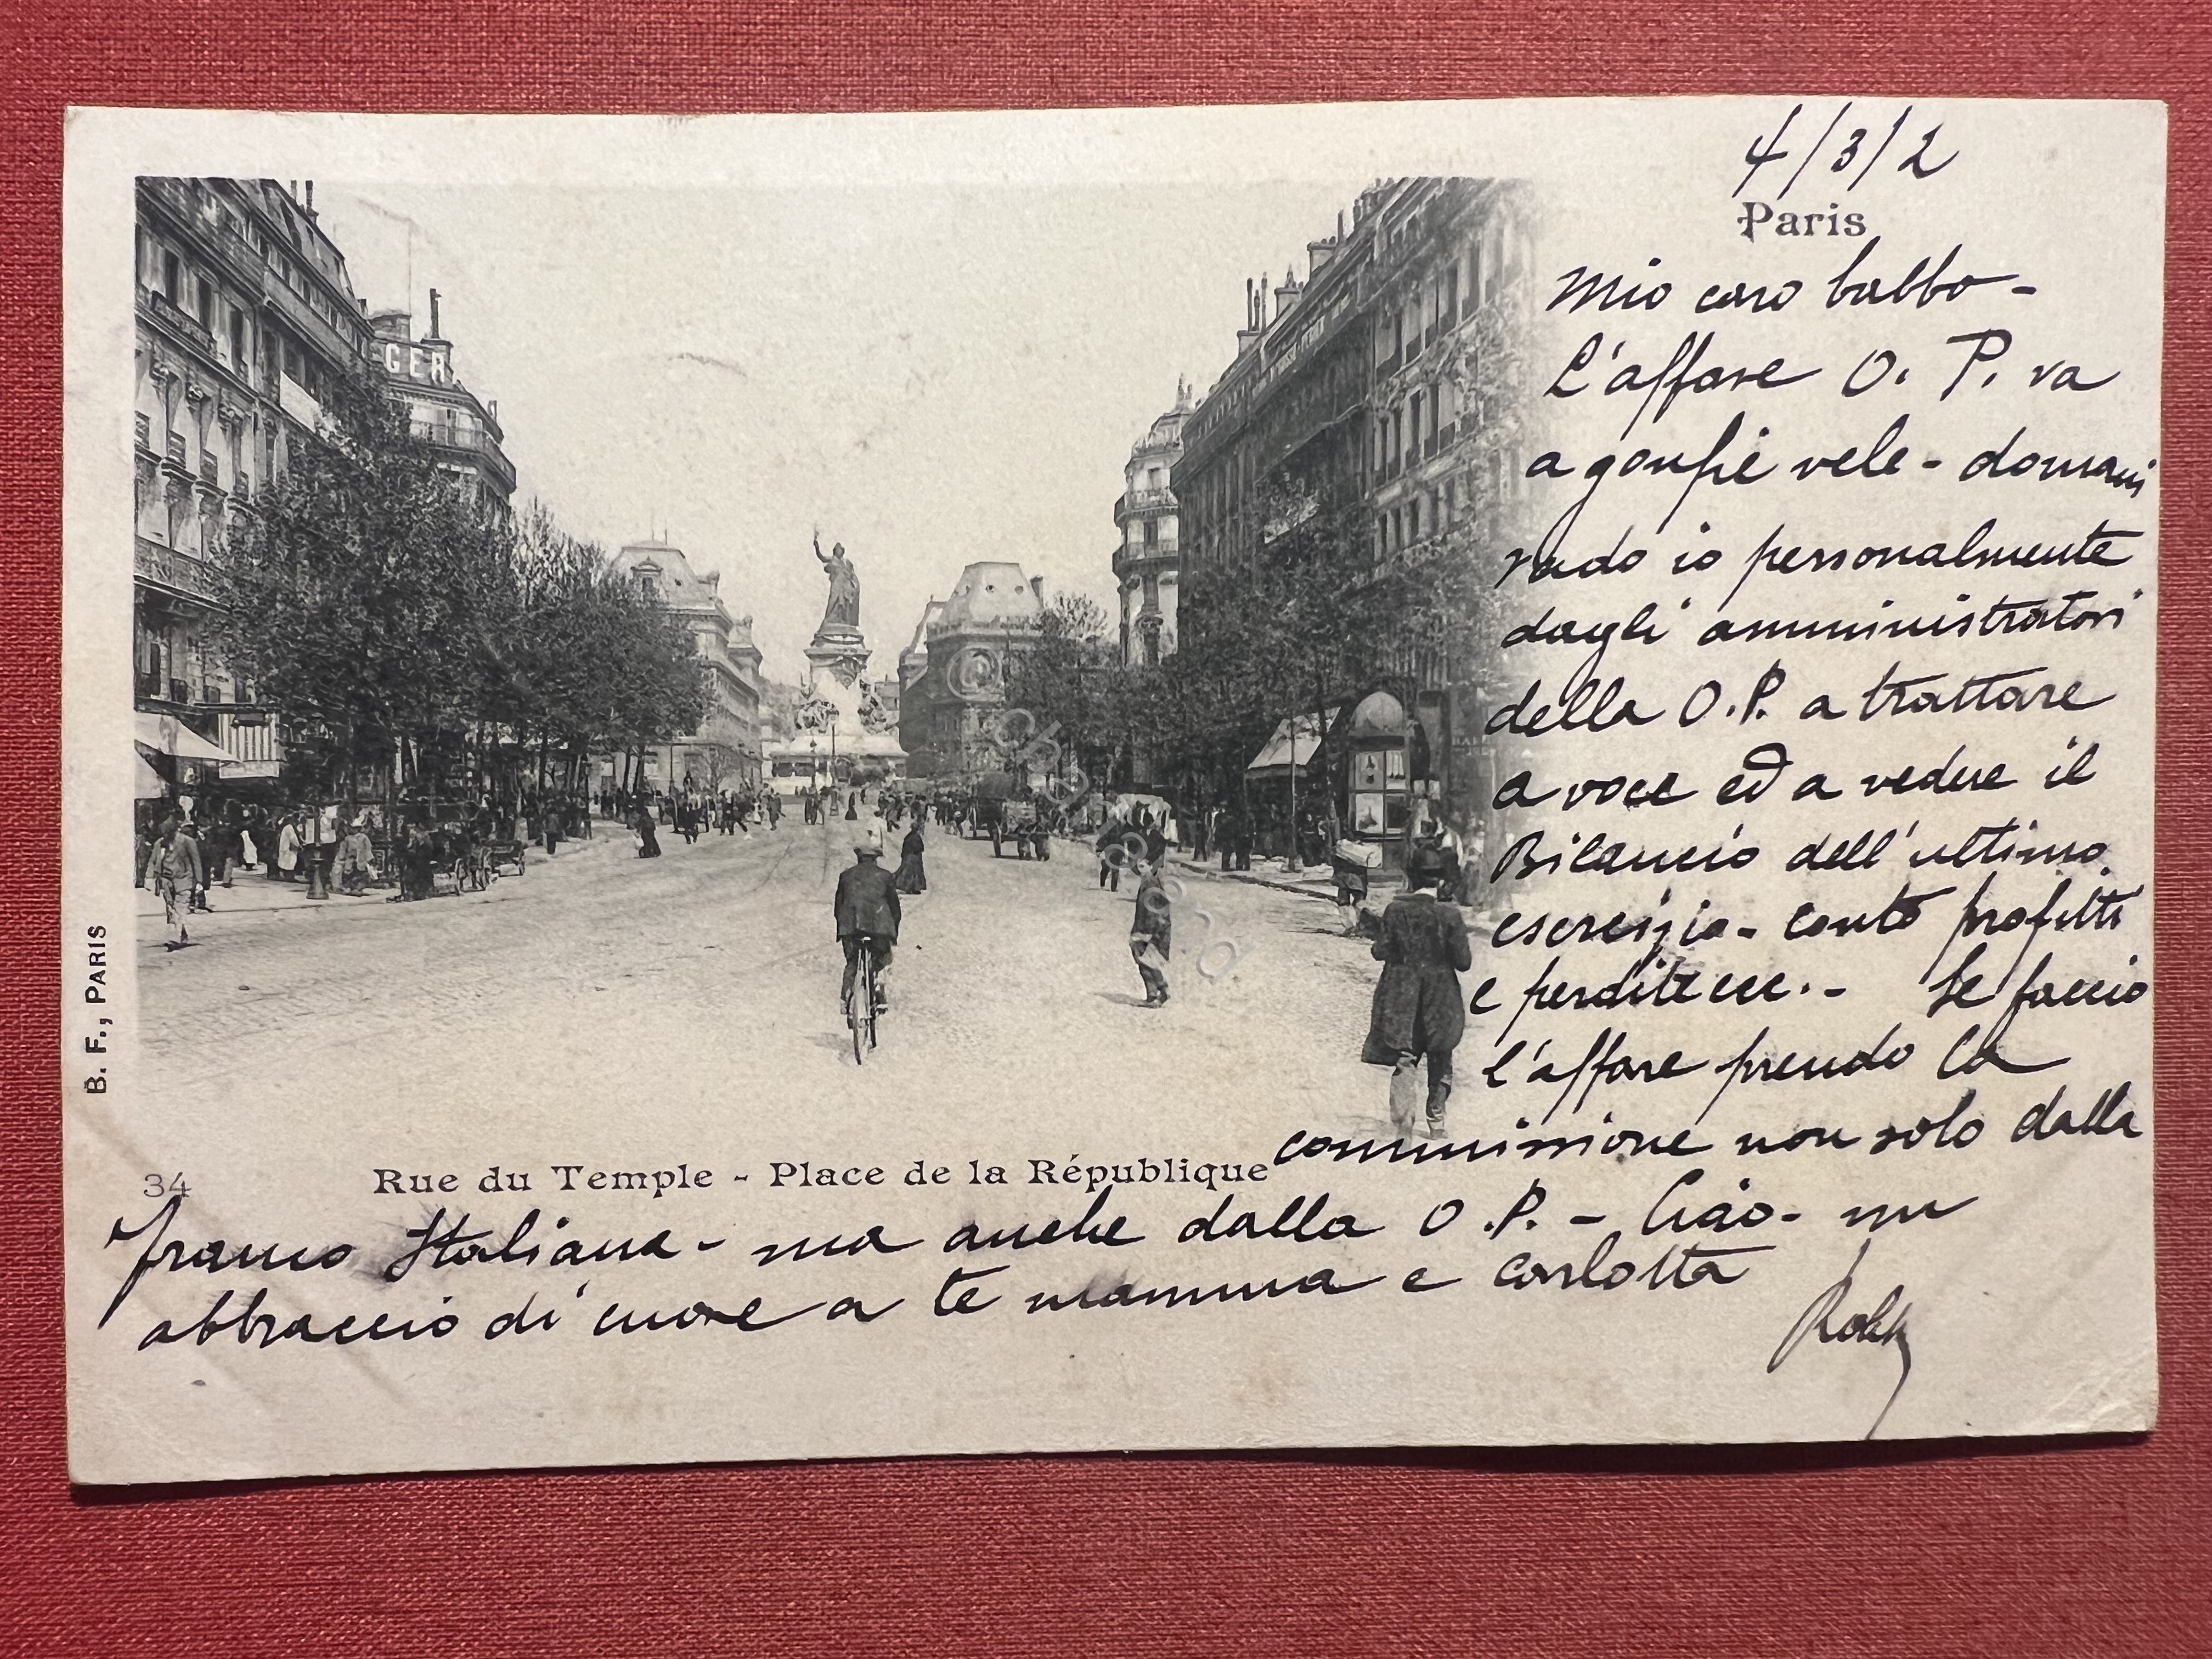 4/3/2
Paris
Mio caro babbo -
L'affare O. P. va
a gonfie vele - domani
vado io personalmente
dagli amministratori
della O.P. a trattare
a voce ed a vedere il
Bilancio dell'ultimo
esercizio - conto profitti
e perdite ecc. - Se faccio
l'affare prendo la
commissione non solo dalla
franco Italiana - ma anche dalla O.P. - Ciao - un
abbraccio di cuore a te mamma e Carlotta
GER
B. F., PARIS
34
Rue du Temple - Place de la République